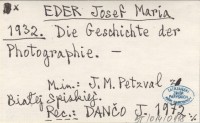 EDER Josef Maria
1932. Die Geschichte der
Photographie. —
M.in.: J. M. Petzval
Białej Spiskiej
Rec.: DANČO J. 197